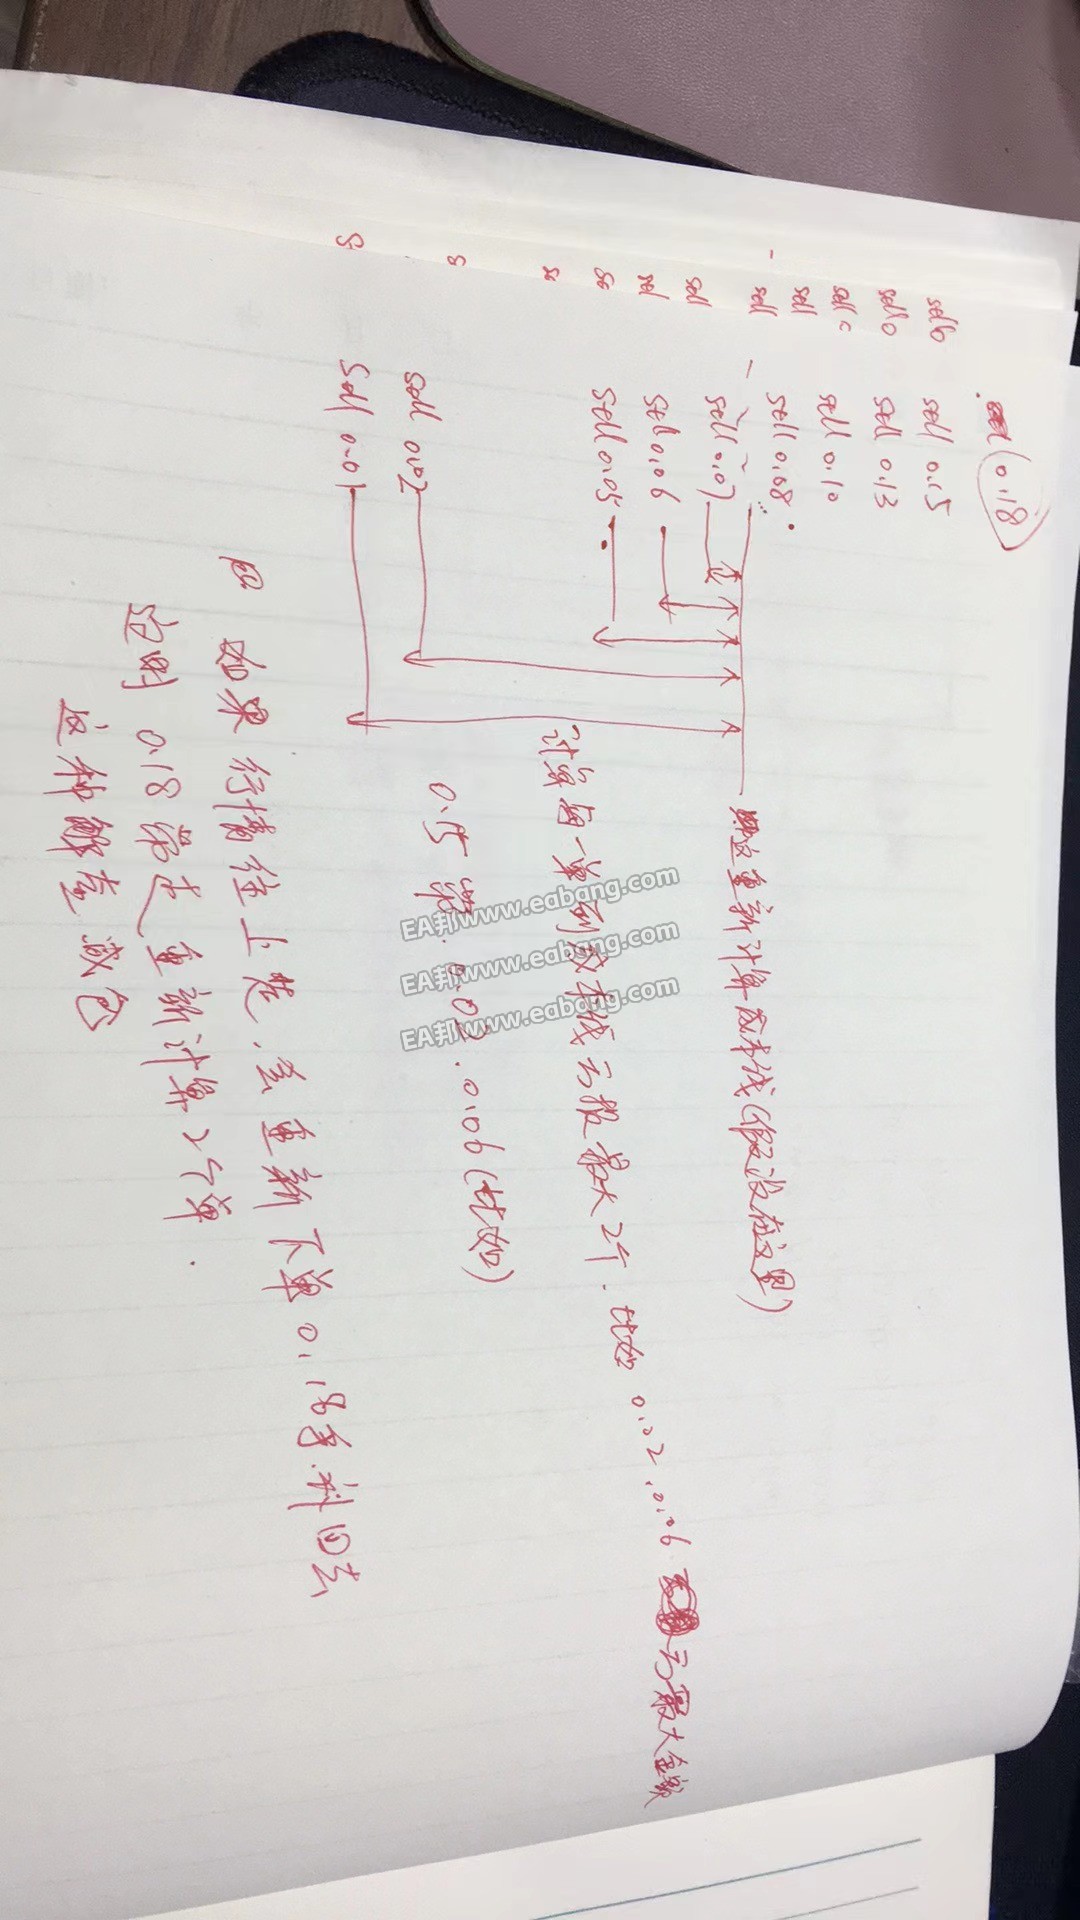 0.18
sell 0.15
sell 0.13
sell 0.10
sell 0.08
sell 0.07
sell 0.06
sell 0.05
sell 0.02
sell 0.01
sell 0
sell 0
sell 0
sell
sell
sell
sel
se
se
s
s
重新计算成本线(假设在这里)
计算每一单到成本线亏损最大2个. 比如 0.02 , 0.06 亏最大金额
0.15 带 . 0.02 . 0.06 (比如)
如果行情往上走, 会重新下单 0.18 多. 利回去
0.18 带走 重新计算2个单.
这种 减仓
EA邦www.eabang.com
EA邦www.eabang.com
EA邦www.eabang.com